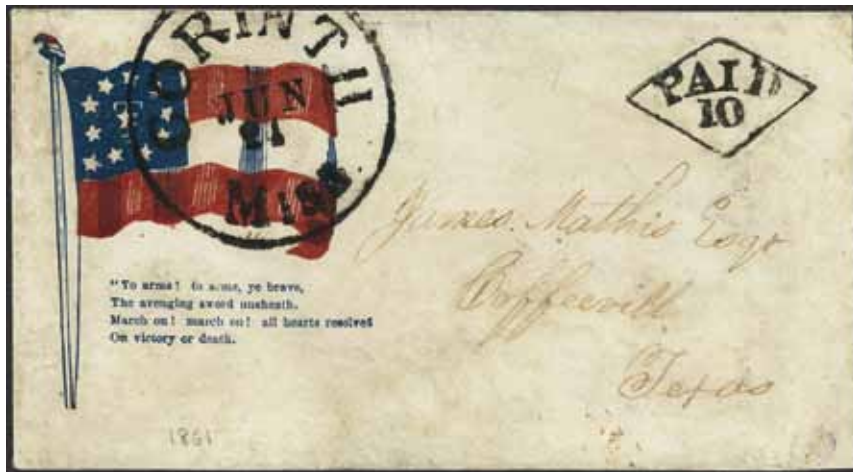 CORINTH
JUN
21
MISS
PAID
10
T
James Mathis Esqr
Coffeeville
Texas
"To arms! to arms, ye brave,
The avenging sword unsheath.
March on! march on! all hearts resolved
On victory or death.
1861